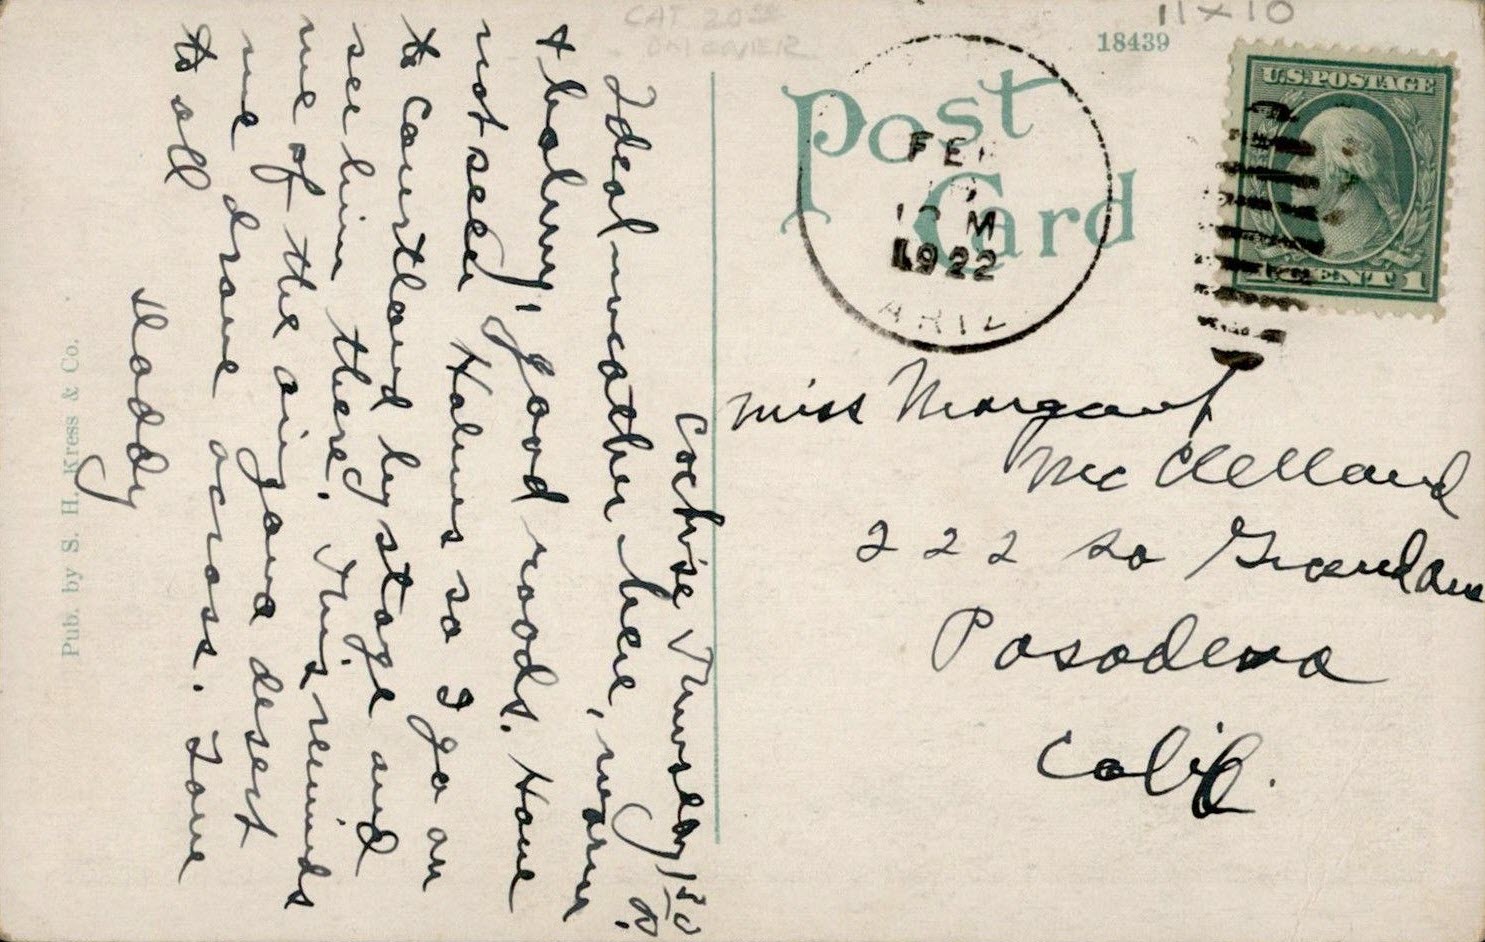 CAT 20
11 x 10
18439
Post
Card
U.S. POSTAGE
1 CENT 1
FEB
M
1922
ARIZ.
Cochise Thursday 1 30 P.
Ideal weather here, warm
& balmy, good roads. Have
not seen Halms so I go on
to Courtland by stage and
see him there. This reminds
me of the airizona desert
we drove across. Love
to all
Daddy
Miss Margaret
McClelland
222 So Grand Ave
Pasadena
Calif.
Pub. by S. H. Kress & Co.